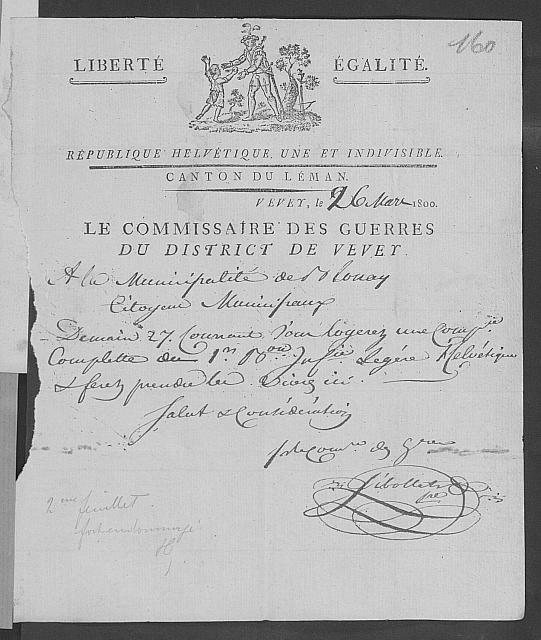 160
LIBERTÉ ÉGALITÉ.
RÉPUBLIQUE HELVÉTIQUE, UNE ET INDIVISIBLE.
CANTON DU LÉMAN.
VEVEY, le 26 Mars 1800.
LE COMMISSAIRE DES GUERRES
DU DISTRICT DE VEVEY
A la Municipalité de Blonay
Citoyens Municipaux
Demain 27. Courant Vous logerez une Comp.ie
Complette du 1.er B.on Inf.ie Legére Helvétique
& ferez prendre les Vivres ici.
Salut & Considération
Le Com.re des Gres
2me feuillet
fort endommagé